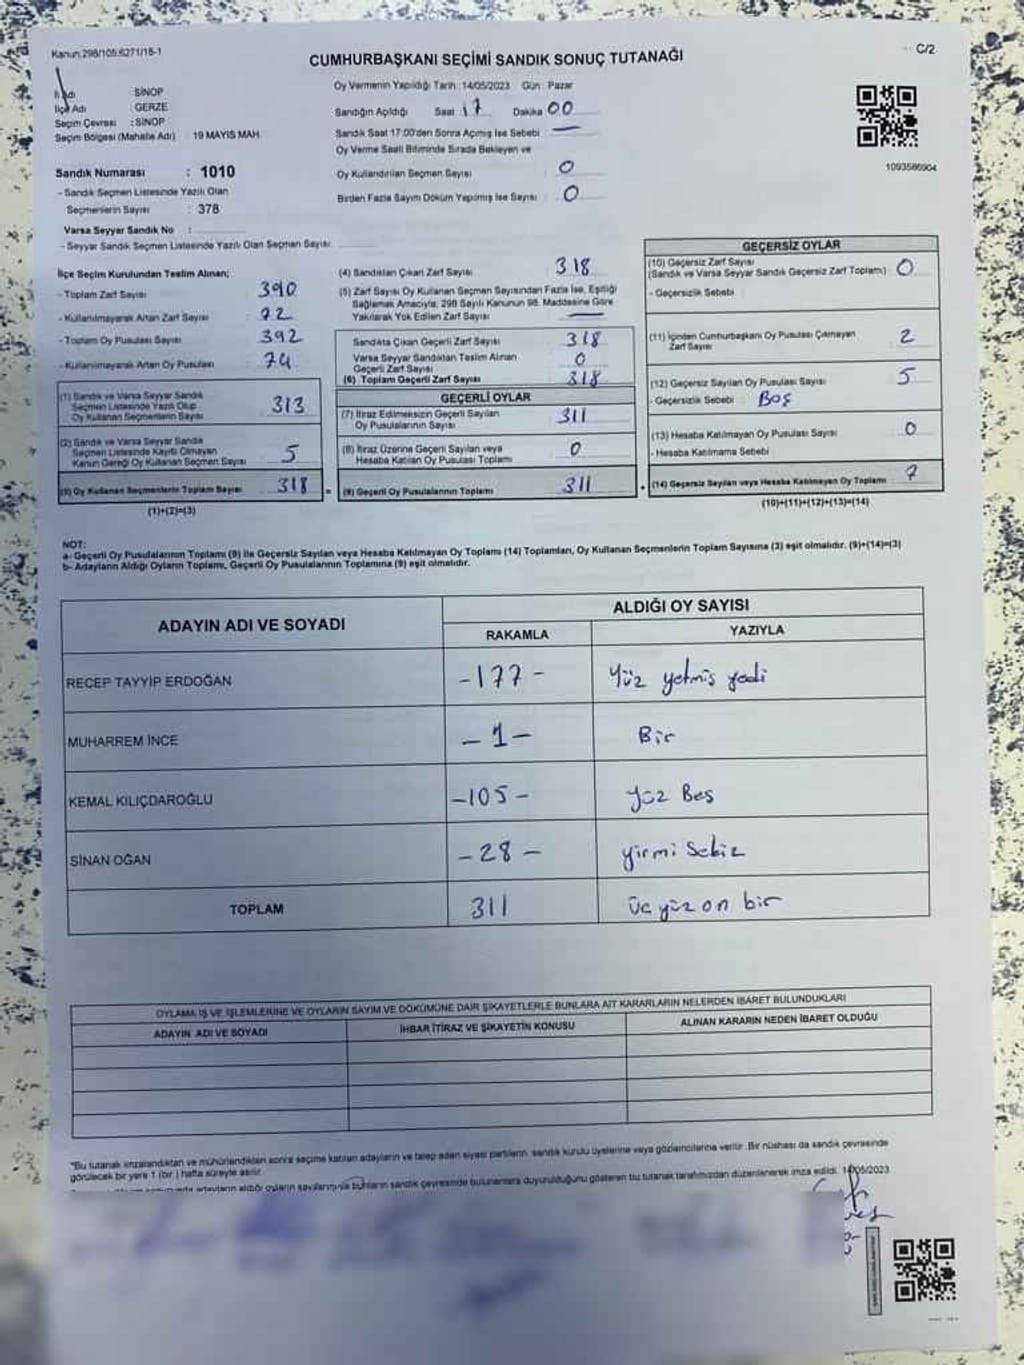 Kanun:298/105,6271/18-1
C/2
CUMHURBAŞKANI SEÇİMİ SANDIK SONUÇ TUTANAĞI
İli Adı : SİNOP
İlçe Adı : GERZE
Seçim Çevresi : SİNOP
Seçim Bölgesi (Mahalle Adı) : 19 MAYIS MAH.
Sandık Numarası : 1010
- Sandık Seçmen Listesinde Yazılı Olan
Seçmenlerin Sayısı : 378
Varsa Seyyar Sandık No :
- Seyyar Sandık Seçmen Listesinde Yazılı Olan Seçmen Sayısı
Oy Vermenin Yapıldığı Tarih : 14/05/2023 Gün : Pazar
Sandığın Açıldığı Saat 17 Dakika 00
Sandık Saat 17:00'den Sonra Açılmış İse Sebebi : —
Oy Verme Saati Bitiminde Sırada Bekleyen ve
Oy Kullandırılan Seçmen Sayısı 0
Birden Fazla Sayım Döküm Yapılmış İse Sayısı 0
1093586904
İlçe Seçim Kurulundan Teslim Alınan;
- Toplam Zarf Sayısı 390
- Kullanılmayarak Artan Zarf Sayısı 72
- Toplam Oy Pusulası Sayısı 392
- Kullanılmayarak Artan Oy Pusulası 74
(1) Sandık ve Varsa Seyyar Sandık
Seçmen Listesinde Yazılı Olup
Oy Kullanan Seçmenlerin Sayısı 313
(2) Sandık ve Varsa Seyyar Sandık
Seçmen Listesinde Kayıtlı Olmayan
Kanun Gereği Oy Kullanan Seçmen Sayısı 5
(3) Oy Kullanan Seçmenlerin Toplam Sayısı 318
(1)+(2)=(3)
(4) Sandıktan Çıkan Zarf Sayısı 318
(5) Zarf Sayısı Oy Kullanan Seçmen Sayısından Fazla İse, Eşitliği
Sağlamak Amacıyla, 298 Sayılı Kanunun 98. Maddesine Göre
Yakılarak Yok Edilen Zarf Sayısı —
Sandıkta Çıkan Geçerli Zarf Sayısı 318
Varsa Seyyar Sandıktan Teslim Alınan
Geçerli Zarf Sayısı 0
(6) Toplam Geçerli Zarf Sayısı 318
GEÇERLİ OYLAR
(7) İtiraz Edilmeksizin Geçerli Sayılan
Oy Pusulalarının Sayısı 311
(8) İtiraz Üzerine Geçerli Sayılan veya
Hesaba Katılan Oy Pusulası Toplamı 0
= (9) Geçerli Oy Pusulalarının Toplamı 311
GEÇERSİZ OYLAR
(10) Geçersiz Zarf Sayısı
(Sandık ve Varsa Seyyar Sandık Geçersiz Zarf Toplamı) 0
- Geçersizlik Sebebi
(11) İçinden Cumhurbaşkanı Oy Pusulası Çıkmayan
Zarf Sayısı 2
(12) Geçersiz Sayılan Oy Pusulası Sayısı 5
- Geçersizlik Sebebi Boş
(13) Hesaba Katılmayan Oy Pusulası Sayısı 0
- Hesaba Katılmama Sebebi
+ (14) Geçersiz Sayılan veya Hesaba Katılmayan Oy Toplamı 7
(10)+(11)+(12)+(13)=(14)
NOT:
a- Geçerli Oy Pusulalarının Toplamı (9) ile Geçersiz Sayılan veya Hesaba Katılmayan Oy Toplamı (14) Toplamları, Oy Kullanan Seçmenlerin Toplam Sayısına (3) eşit olmalıdır. (9)+(14)=(3)
b- Adayların Aldığı Oyların Toplamı, Geçerli Oy Pusulalarının Toplamına (9) eşit olmalıdır.
ADAYIN ADI VE SOYADI
ALDIĞI OY SAYISI
RAKAMLA YAZIYLA
RECEP TAYYİP ERDOĞAN -177- Yüz yetmiş yedi
MUHARREM İNCE -1- Bir
KEMAL KILIÇDAROĞLU -105- yüz Beş
SİNAN OĞAN -28- yirmi Sekiz
TOPLAM 311 üç yüz on bir
OYLAMA İŞ VE İŞLEMLERİNE VE OYLARIN SAYIM VE DÖKÜMÜNE DAİR ŞİKAYETLERLE BUNLARA AİT KARARLARIN NELERDEN İBARET BULUNDUKLARI
ADAYIN ADI VE SOYADI İHBAR İTİRAZ VE ŞİKAYETİN KONUSU ALINAN KARARIN NEDEN İBARET OLDUĞU
"Bu tutanak imzalandıktan ve mühürlendikten sonra seçime katılan adayların ve talep eden siyasi partilerin sandık kurulu üyelerine veya gözlemcilerine verilir. Bir nüshası da sandık çevresinde
görülecek bir yere 1 (bir) hafta süreyle asılır.
adayların aldığı oyların sayılarının ve bunların sandık çevresinde bulunanlara duyurulduğunu gösteren bu tutanak tarafımızdan düzenlenerek imza edildi. 14/05/2023